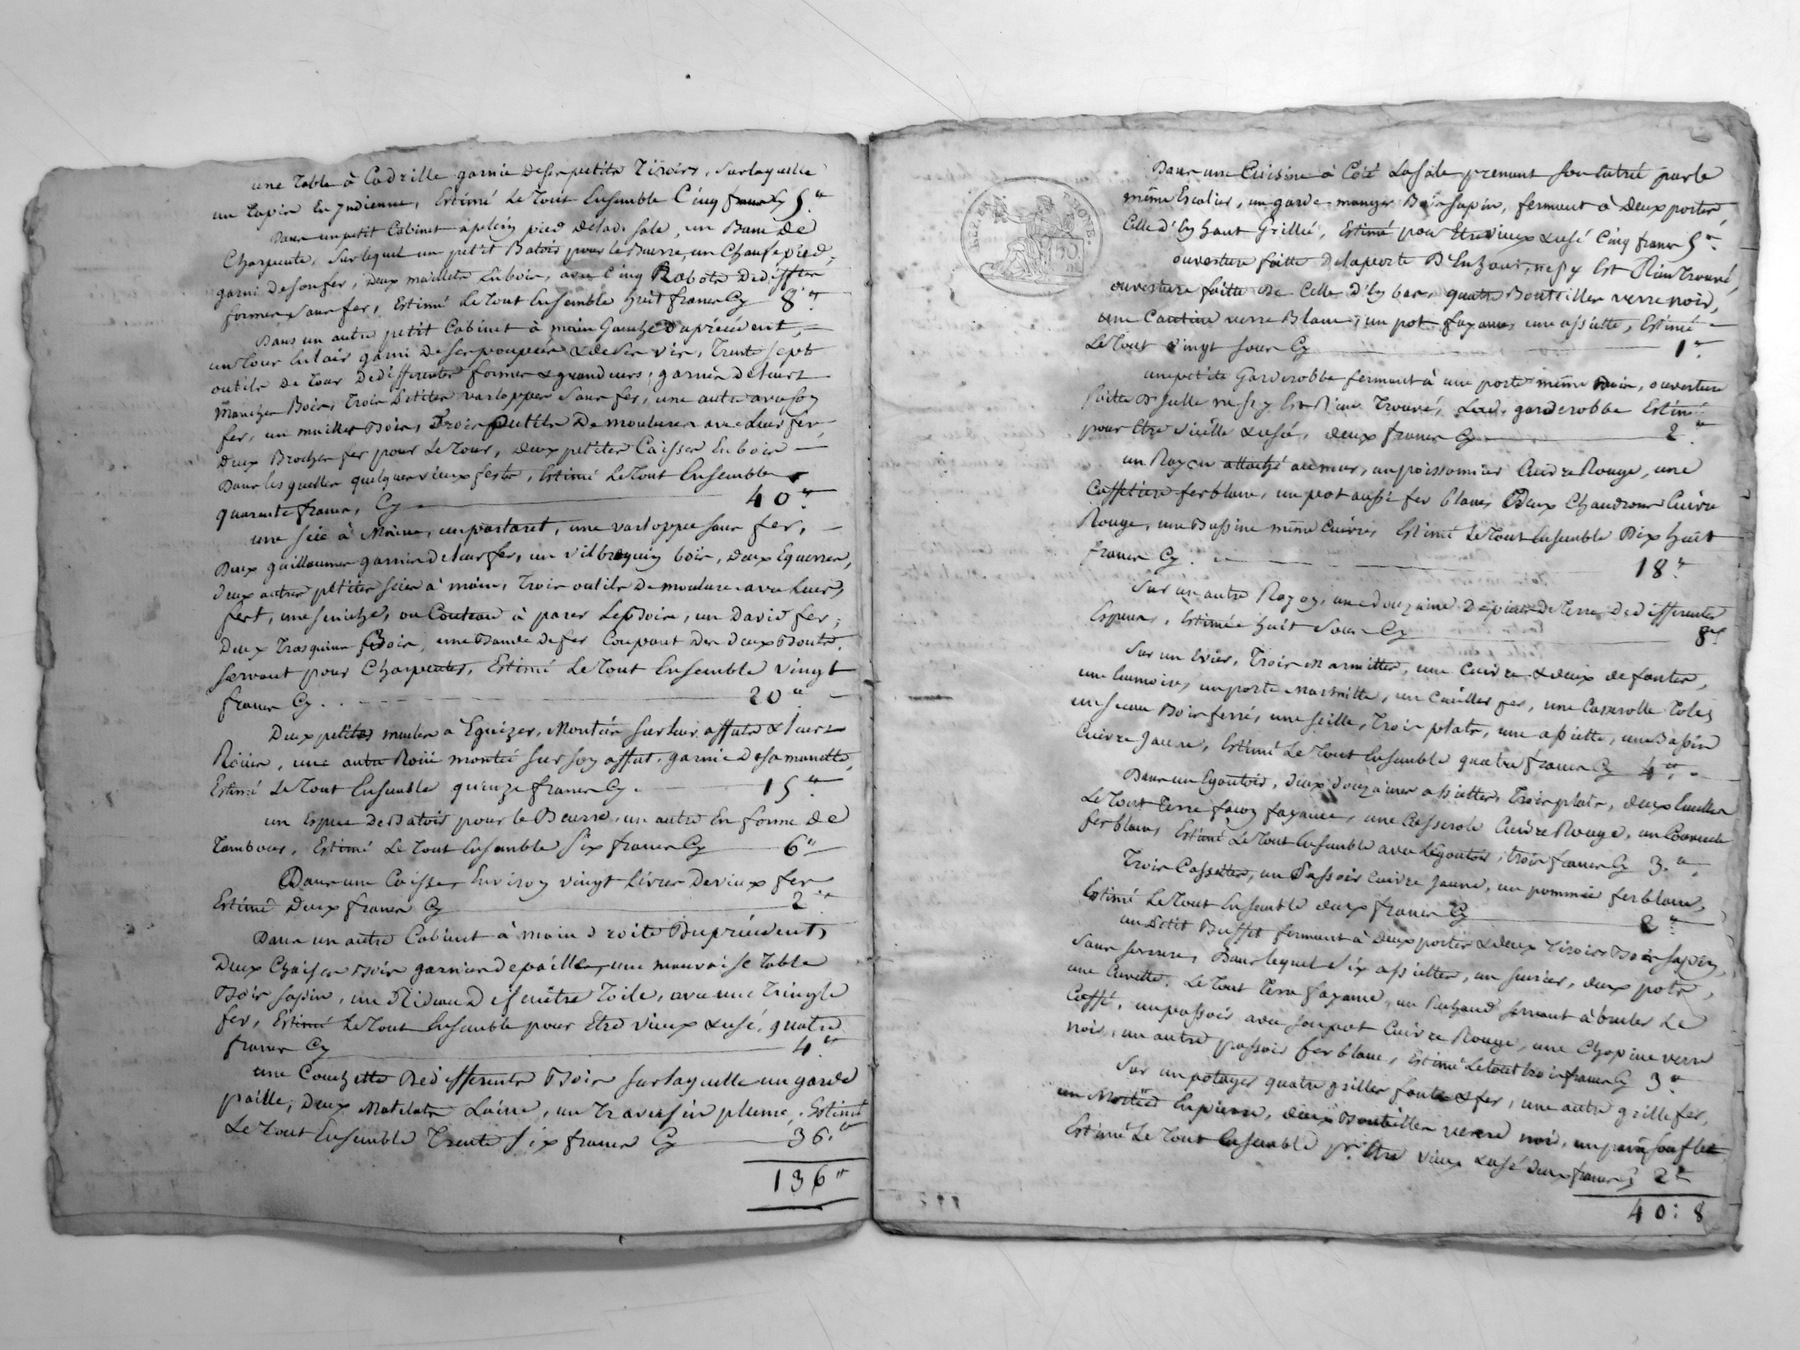 une Table à Cadrille garnie de ses petits Tiroirs, sur laquelle
un Tapis En yndienne, Estimé Le Tout Ensemble Cinq francs Cy 5."
Dans un petit Cabinet aplein pied de lad. sale, un Banc de
Charpente, sur lequel un petit Batois pour le Beurre, un Chaufe pied,
garni de son fer, deux maillets En bois, avec Cinq Rabots De differ
formes sans fer, Estimé Le Tout Ensemble huit francs Cy 8"
Dans un autre petit Cabinet à main Gauche Du précédent,
un Tour En l'air garni de ses poupées & de Ses vis, Trente sept
outils de Tour De differentes formes & grandeurs, garnis de leurs
Manches Bois, Trois Petites varloppes Sans fer, une autre avec son
fer, un maillet Bois, Trois Outils De moulures avec Leur fer,
Deux Broches fer pour Le Tour, deux petites Caisses En bois
Dans les quelles quelques vieux fests, Estimé Le Tout Ensemble
quarante francs, Cy 40."
une scie à Moine, un partaret, une varloppe sans fer,
Deux guillaumes garnis de leur fer, un vilbrequin bois, deux Equerres,
deux autres petites scies à main, Trois outils De moulure avec Leurs
fert, une smiche, ou Couteau à parer Les Bois, un David fer,
Deux Trasquins Bois, une Bande de fer Coupant Des deux Bouts,
servant pour Charpentes, Estimé Le Tout Ensemble vingt
francs Cy . . 20"
Deux petites meules à Eguizer, Montées sur leurs affuts & leurs
Roües, une autre Roüe montée sur son affut, garnie de sa manette,
Estimé Le Tout Ensemble quinze francs Cy. 15."
un Espece de Batois pour le Beurre, un autre En forme de
Tambour, Estimé Le Tout Ensemble Six francs Cy 6"
Dans une Caisse, Environ vingt Livres De vieux fer
Estimé Deux francs Cy 2"
Dans un autre Cabinet à main droite Du précédent,
Deux Chaises Bois garnies de paille, une mauvaise Table
Bois sapin, un Rideau de fenêtre Toile, avec une Tringle
fer, Estimé Le Tout Ensemble pour Etre vieux & usé, quatre
francs Cy 4."
une Couchette De differents Bois sur laquelle un garde
paille, Deux Matelats Laine, un Traversin plume, Estimé
Le Tout Ensemble Trente six francs Cy 36."
136"
Dans une Cuisine à Côté La sale prenant son entrée par le
même Escalier, un garde-manger Bois sapin, fermant à Deux portes,
Celle d'En haut Grillée, Estimé pour Etre vieux & usé Cinq francs 5".
ouverture faitte de la porte D'En haut, ne s'y Est Rien Trouvé,
ouverture faitte de Celle d'En bas, quatre Bouteilles verre noir,
une Cantine verre Blanc, un pot fayance, une assiette, Estimé
Le Tout vingt sous Cy 1"
une petite Garderobbe fermant à une porte même Bois, ouverture
faitte d'Icelle ne s'y Est Rien Trouvé, Lad. garderobbe Estimé
pour Etre vieille & usée, deux francs Cy 2."
un Rayon attaché au mur, un poissonnier Cuivre Rouge, une
Caffetiere fer blanc, un pot aussi fer blanc, Deux Chaudrons Cuivre
Rouge, une Bassine même Cuivre, Estimé Le Tout Ensemble Dix huit
francs Cy . 18."
Sur un autre Rayon, une douzaine De pieces De Terre De differentes
Especes, Estimée huit Sous Cy 8s
Sur un Evier, Trois Marmittes, une Cuivre & deux de fontes,
une Cumoire, un porte Marmitte, un Cuiller fer, une Casserolle Tole,
un seau Bois ferré, une seille, Trois plats, une assiette, une Bassin
Cuivre Jaune, Estimé Le Tout Ensemble quatre francs Cy 4".
Dans un Egoutois, deux douzaines assiettes, Trois plats, deux Ecuelles
Le Tout Terre façon fayance, une Casserole Cuivre Rouge, un Couvercle
fer blanc, Estimé Le Tout Ensemble avec L'égoutois, trois francs Cy 3."
Trois Cassettes, un Passoir Cuivre Jaune, un pommié fer blanc,
Estimé Le Tout Ensemble deux francs Cy 2"
un Petit Buffet fermant à Deux portes & deux Tiroirs Bois sapin,
Sans serrure, Dans lequel Six assiettes, un sucrier, deux pots,
une Cuvette, Le Tout Terre fayance, un Rechaud servant à bruler Le
Caffé, un passoir avec son pot Cuivre Rouge, une Chopine verre
noir, un autre passoir fer blanc, Estimé Le Tout trois francs Cy 3"
Sur un potager quatre grilles fonte & fer, une autre grille fer,
un Mortier En pierre, deux Bouteilles verre noir, un pair souflet
Estimé Le Tout Ensemble pr. Etre vieux & usé deux francs Cy 2"
40: 8